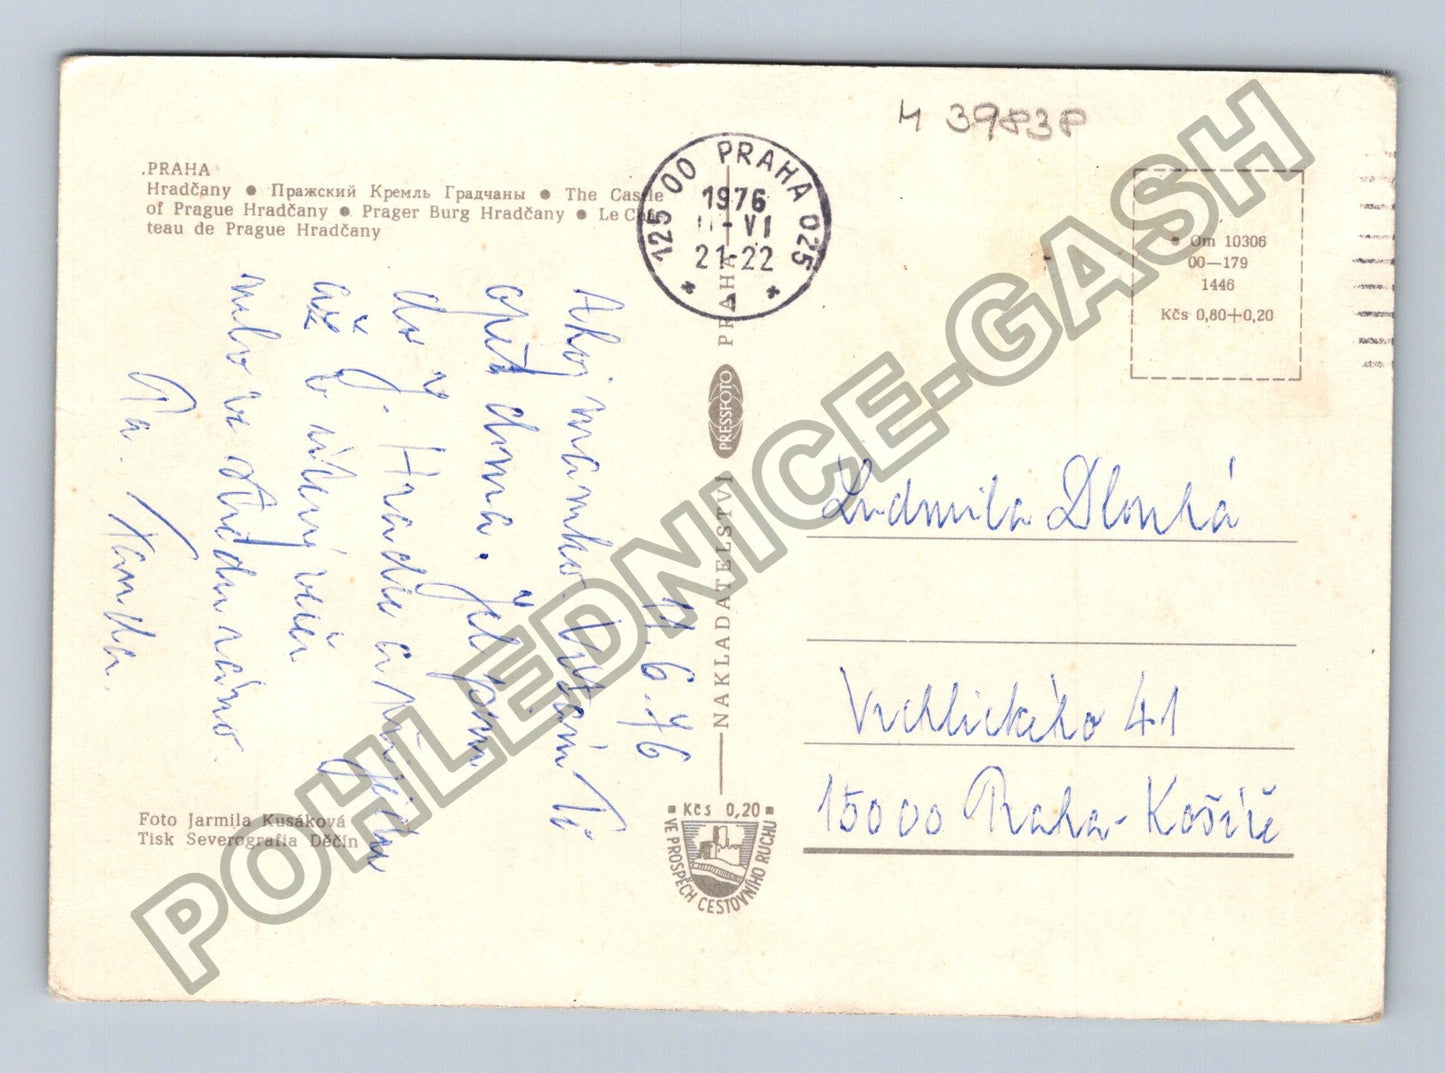 H 39838
.PRAHA
Hradčany ● Пражский Кремль Градчаны ● The Castle
of Prague Hradčany ● Prager Burg Hradčany ● Le Châ-
teau de Prague Hradčany
125 00 PRAHA 025
1976
-VI
21-22
* 1 *
● Om 10306
00—179
1446
Kčs 0,80+0,20
11.6.76
Ahoj mamko.
opět doma. Jel jsem
do J. Hradce a
až v úterý večer
nebo ve středu ráno.
Pa.
NAKLADATELSTVÍ PRESSFOTO PRAHA
Ludmila Dlouhá
Vrchlického 41
15000 Praha-Košíře
Foto Jarmila Kusáková
Tisk Severografia Děčín
Kčs 0,20
VE PROSPĚCH CESTOVNÍHO RUCHU
POHLEDNICE-GASH